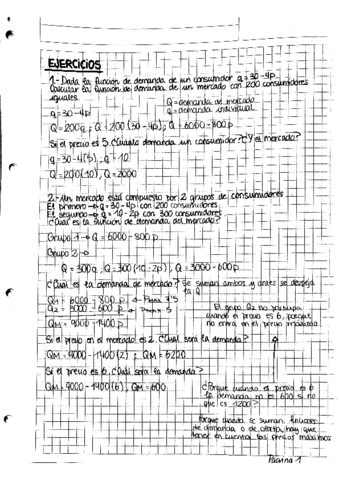 EJERCICIOS
1.- Dada la función de demanda de un consumidor q = 30 - 4p
Calcular la función de demanda de un mercado con 200 consumidores
iguales.
Q = demanda de mercado
q = demanda individual
q = 30 - 4p
Q = 200q ; Q = 200 (30 - 4p) ; Q = 6000 - 800p
Si el precio es 5. Cuánto demanda un consumidor? ¿Y el mercado?
q = 30 - 4(5) ; q = 10
Q = 200(10) ; Q = 2000
2.- Un mercado está compuesto por 2 grupos de consumidores
El primero → q = 30 - 4p con 200 consumidores
El segundo → q = 10 - 2p con 300 consumidores
¿Cuál es la función de demanda del mercado?
Grupo 1 → Q = 6000 - 800p
Grupo 2 →
Q = 300q ; Q = 300 (10 - 2p) ; Q = 3000 - 600p
¿Cuál es la demanda de mercado? Se suman ambos y antes se despeja
la Q
Q1 = 6000 - 800p → Pmax 7'5
Q2 = 3000 - 600p → Pmax 5
QM = 9000 - 1400p
El grupo Q2 no participa
cuando el precio es 6, porque
no entra en el precio máximo
Si el precio en el mercado es 2. ¿Cuál será la demanda?
QM = 9000 - 1400(2) ; QM = 6200
Si el precio es 6. ¿Cuál será la demanda?
QM = 9000 - 1400(6) ; QM = 600
¿Porque cuando el precio es 6
la demanda no es 600 si no
que es 1200?
Porque cuando se suman funciones
de demanda o de oferta, hay que
tener en cuenta los precios máximos
Página 1